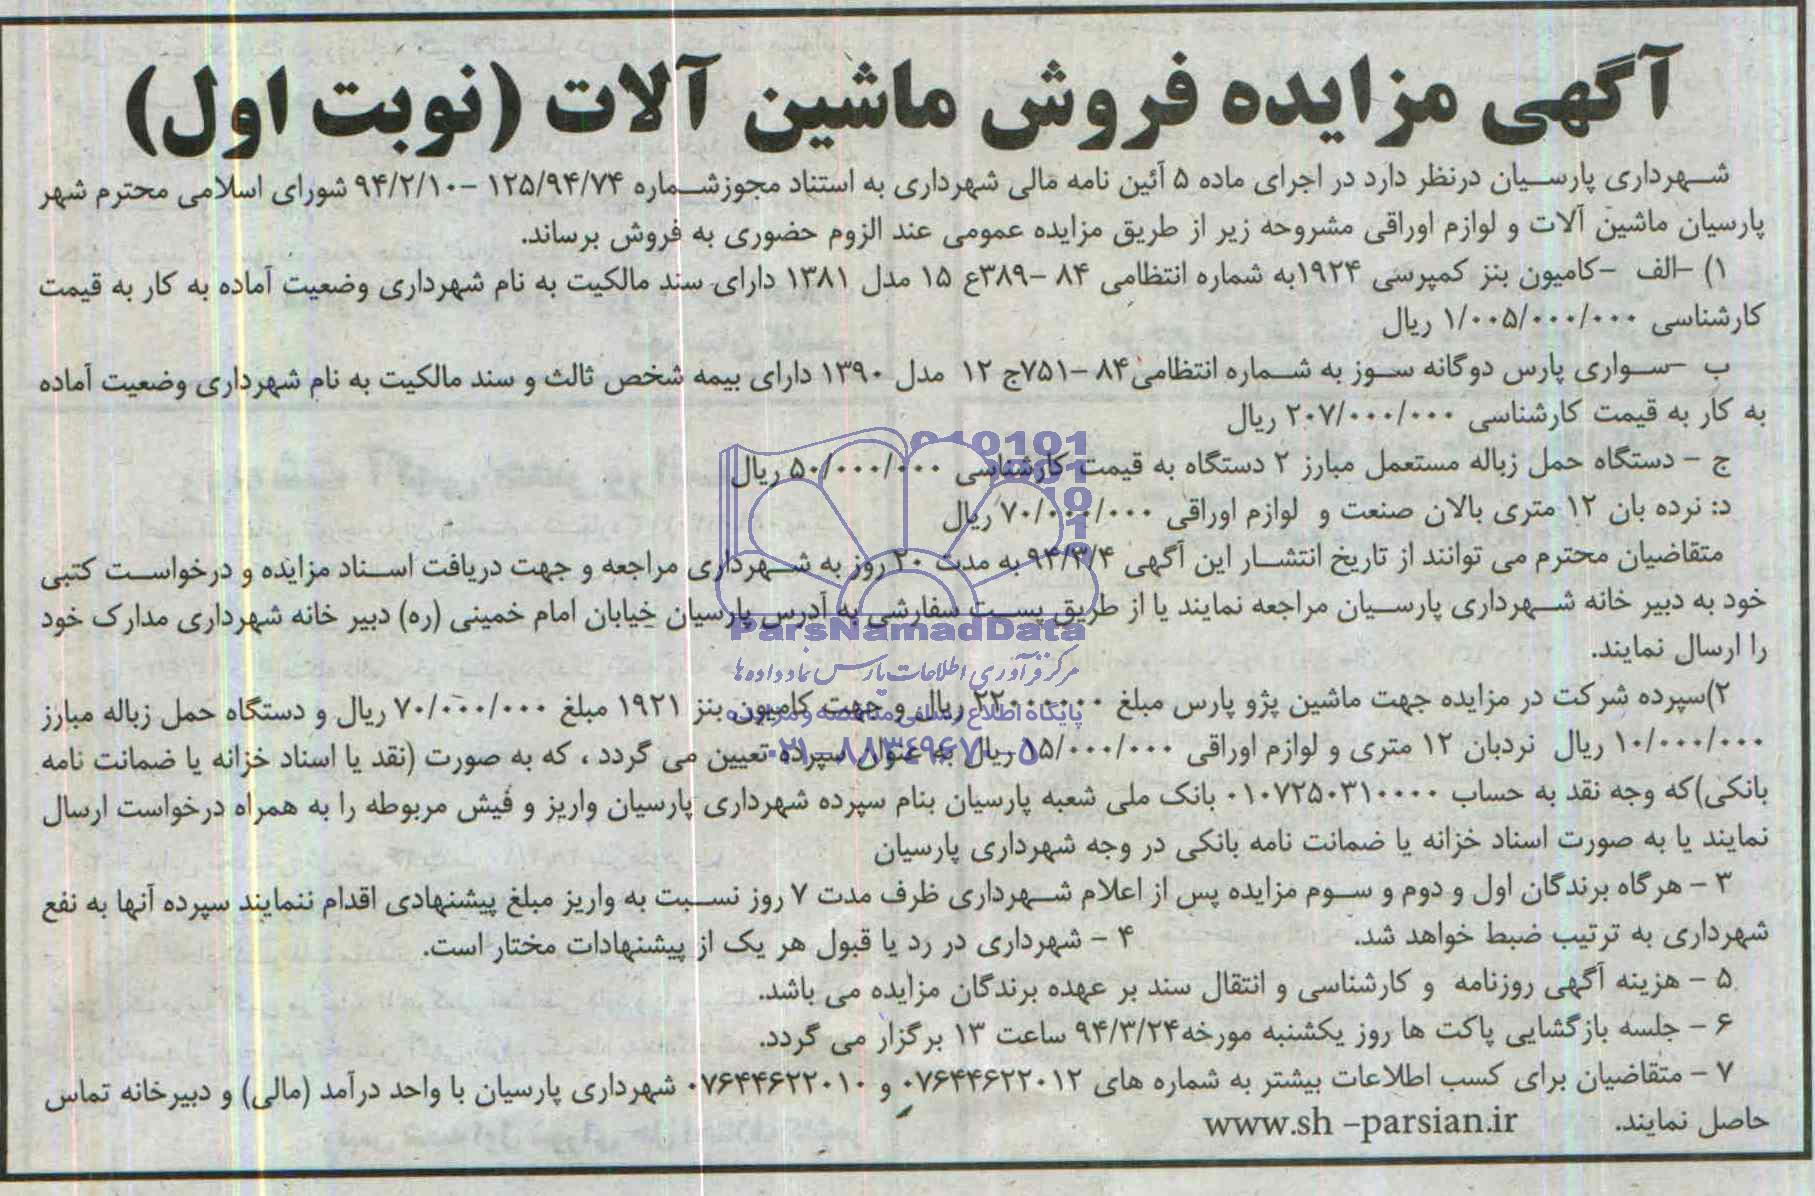 آگهی مزایده فروش ماشین آلات (نوبت اول)
شهرداری پارسیان درنظر دارد در اجرای ماده ۵ آئین نامه مالی شهرداری به استناد مجوزشماره ۱۲۵/۹۴/۷۴ -۹۴/۲/۱۰ شورای اسلامی محترم شهر
پارسیان ماشین آلات و لوازم اوراقی مشروحه زیر از طریق مزایده عمومی عند الزوم حضوری به فروش برساند.
۱) -الف -کامیون بنز کمپرسی ۱۹۲۴به شماره انتظامی ۸۴ -۳۸۹ع ۱۵ مدل ۱۳۸۱ دارای سند مالکیت به نام شهرداری وضعیت آماده به کار به قیمت
کارشناسی ۱/۰۰۵/۰۰۰/۰۰۰ ریال
ب -سواری پارس دوگانه سوز به شماره انتظامی۸۴ -۷۵۱ج ۱۲ مدل ۱۳۹۰ دارای بیمه شخص ثالث و سند مالکیت به نام شهرداری وضعیت آماده
به کار به قیمت کارشناسی ۲۰۷/۰۰۰/۰۰۰ ریال
ج - دستگاه حمل زباله مستعمل مبارز ۲ دستگاه به قیمت کارشناسی ۵۰/۰۰۰/۰۰۰ ریال
د: نرده بان ۱۲ متری بالان صنعت و لوازم اوراقی ۷۰/۰۰۰/۰۰۰ ریال
متقاضیان محترم می توانند از تاریخ انتشار این آگهی ۹۴/۳/۴ به مدت ۲۰ روز به شهرداری مراجعه و جهت دریافت اسناد مزایده و درخواست کتبی
خود به دبیر خانه شهرداری پارسیان مراجعه نمایند یا از طریق پست سفارشی به آدرس پارسیان خیابان امام خمینی (ره) دبیر خانه شهرداری مدارک خود
را ارسال نمایند.
ParsNamadData
مرکز فرآوری اطلاعات پارس نماد داده ها
۲)سپرده شرکت در مزایده جهت ماشین پژو پارس مبلغ ۲۲۰۰۰۰۰۰ ریال و جهت کامیون بنز ۱۹۲۱ مبلغ ۷۰/۰۰۰/۰۰۰ ریال و دستگاه حمل زباله مبارز
پایگاه اطلاع رسانی مناقصه و مزایده
۱۰/۰۰۰/۰۰۰ ریال نردبان ۱۲ متری و لوازم اوراقی ۱۵/۰۰۰/۰۰۰ ریال به عنوان سپرده تعیین می گردد ، که به صورت (نقد یا اسناد خزانه یا ضمانت نامه
۰۲۱-۸۸۳۴۹۶۷۰-۵
بانکی)که وجه نقد به حساب ۰۱۰۷۲۵۰۳۱۰۰۰۰ بانک ملی شعبه پارسیان بنام سپرده شهرداری پارسیان واریز و فیش مربوطه را به همراه درخواست ارسال
نمایند یا به صورت اسناد خزانه یا ضمانت نامه بانکی در وجه شهرداری پارسیان
۳ - هرگاه برندگان اول و دوم و سوم مزایده پس از اعلام شهرداری ظرف مدت ۷ روز نسبت به واریز مبلغ پیشنهادی اقدام ننمایند سپرده آنها به نفع
شهرداری به ترتیب ضبط خواهد شد. ۴ - شهرداری در رد یا قبول هر یک از پیشنهادات مختار است.
۵ - هزینه آگهی روزنامه و کارشناسی و انتقال سند بر عهده برندگان مزایده می باشد.
۶ - جلسه بازگشایی پاکت ها روز یکشنبه مورخه۹۴/۳/۲۴ ساعت ۱۳ برگزار می گردد.
۷ - متقاضیان برای کسب اطلاعات بیشتر به شماره های ۰۷۶۴۴۶۲۲۰۱۲ و ۰۷۶۴۴۶۲۲۰۱۰ شهرداری پارسیان با واحد درآمد (مالی) و دبیرخانه تماس
حاصل نمایند. www.sh -parsian.ir